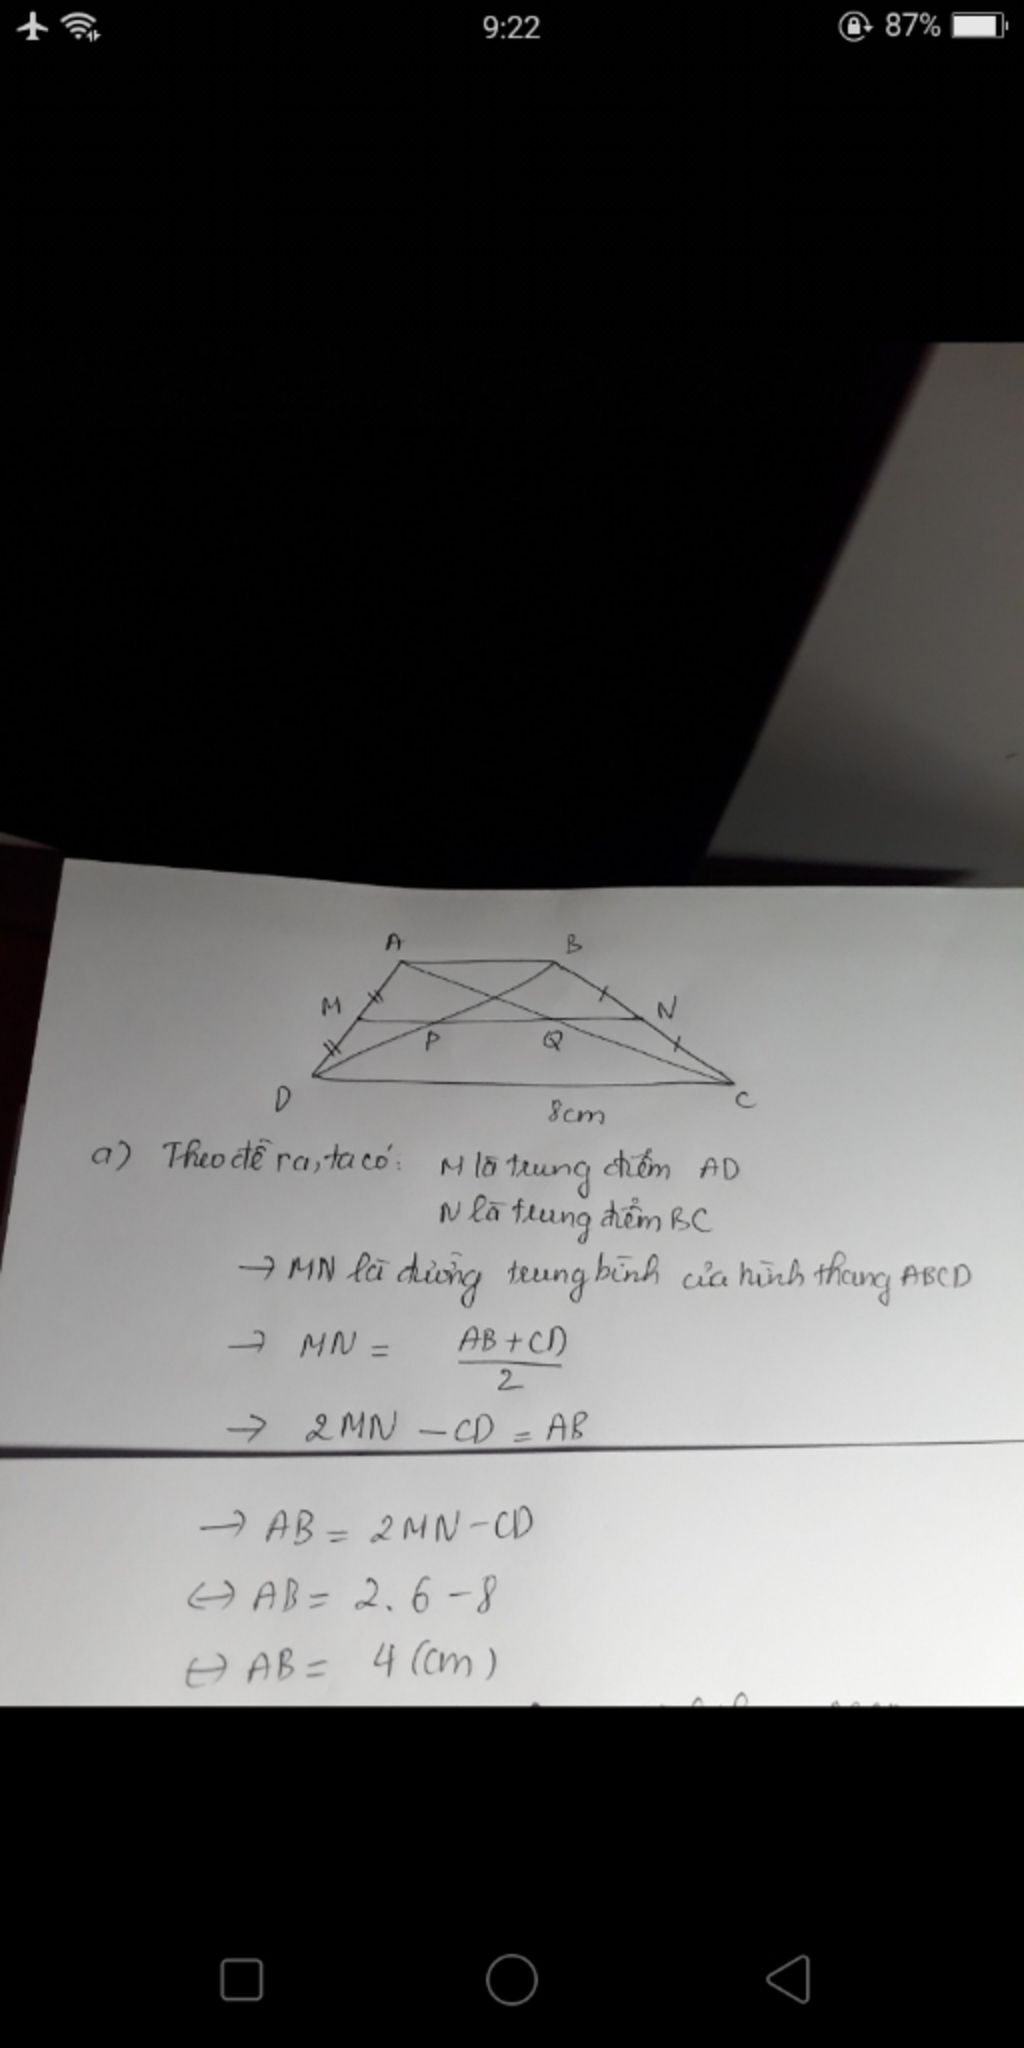 9:22
87%
A
B
M
N
P
Q
D
C
8cm
a) Theo đề ra, ta có: M là trung điểm AD
N là trung điểm BC
→ MN là đường trung bình của hình thang ABCD
→ MN = AB + CD
2
→ 2MN - CD = AB
→ AB = 2MN - CD
↔ AB = 2. 6 - 8
↔ AB = 4 (cm)